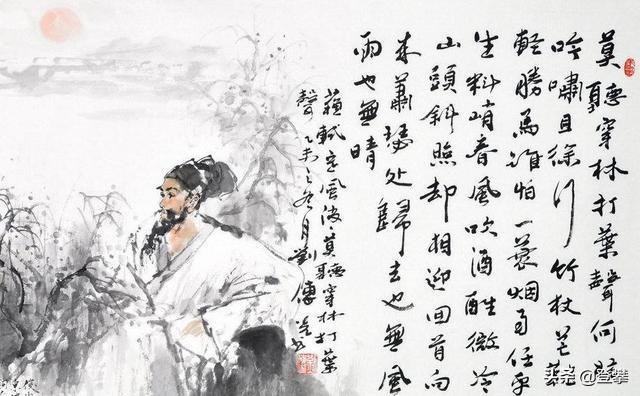 莫聽穿林打葉聲何妨
吟嘯且徐行竹杖芒鞋
輕勝馬誰怕一蓑烟雨任平
生料峭春風吹酒醒微冷
山頭斜照却相迎回首向
来蕭瑟处歸去也無風
雨也無晴
蘇軾定風波莫聽穿林打葉
聲乙未之冬月劉傳
头条@登攀